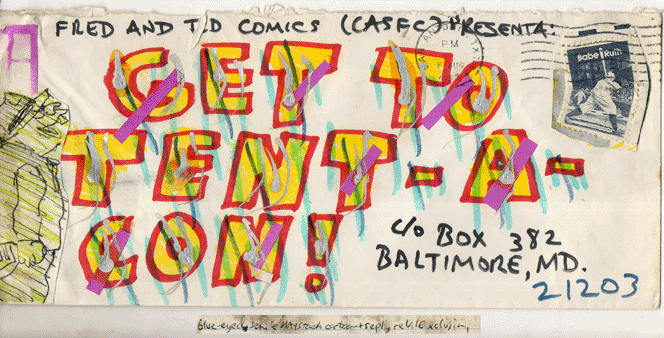 FRED AND TED COMICS (CASFC) PRESENTA:
PM
TX
Babe Ruth
GET TO
TENT-A-
CON!
c/o BOX 382
BALTIMORE, MD.
21203
blue-eyed